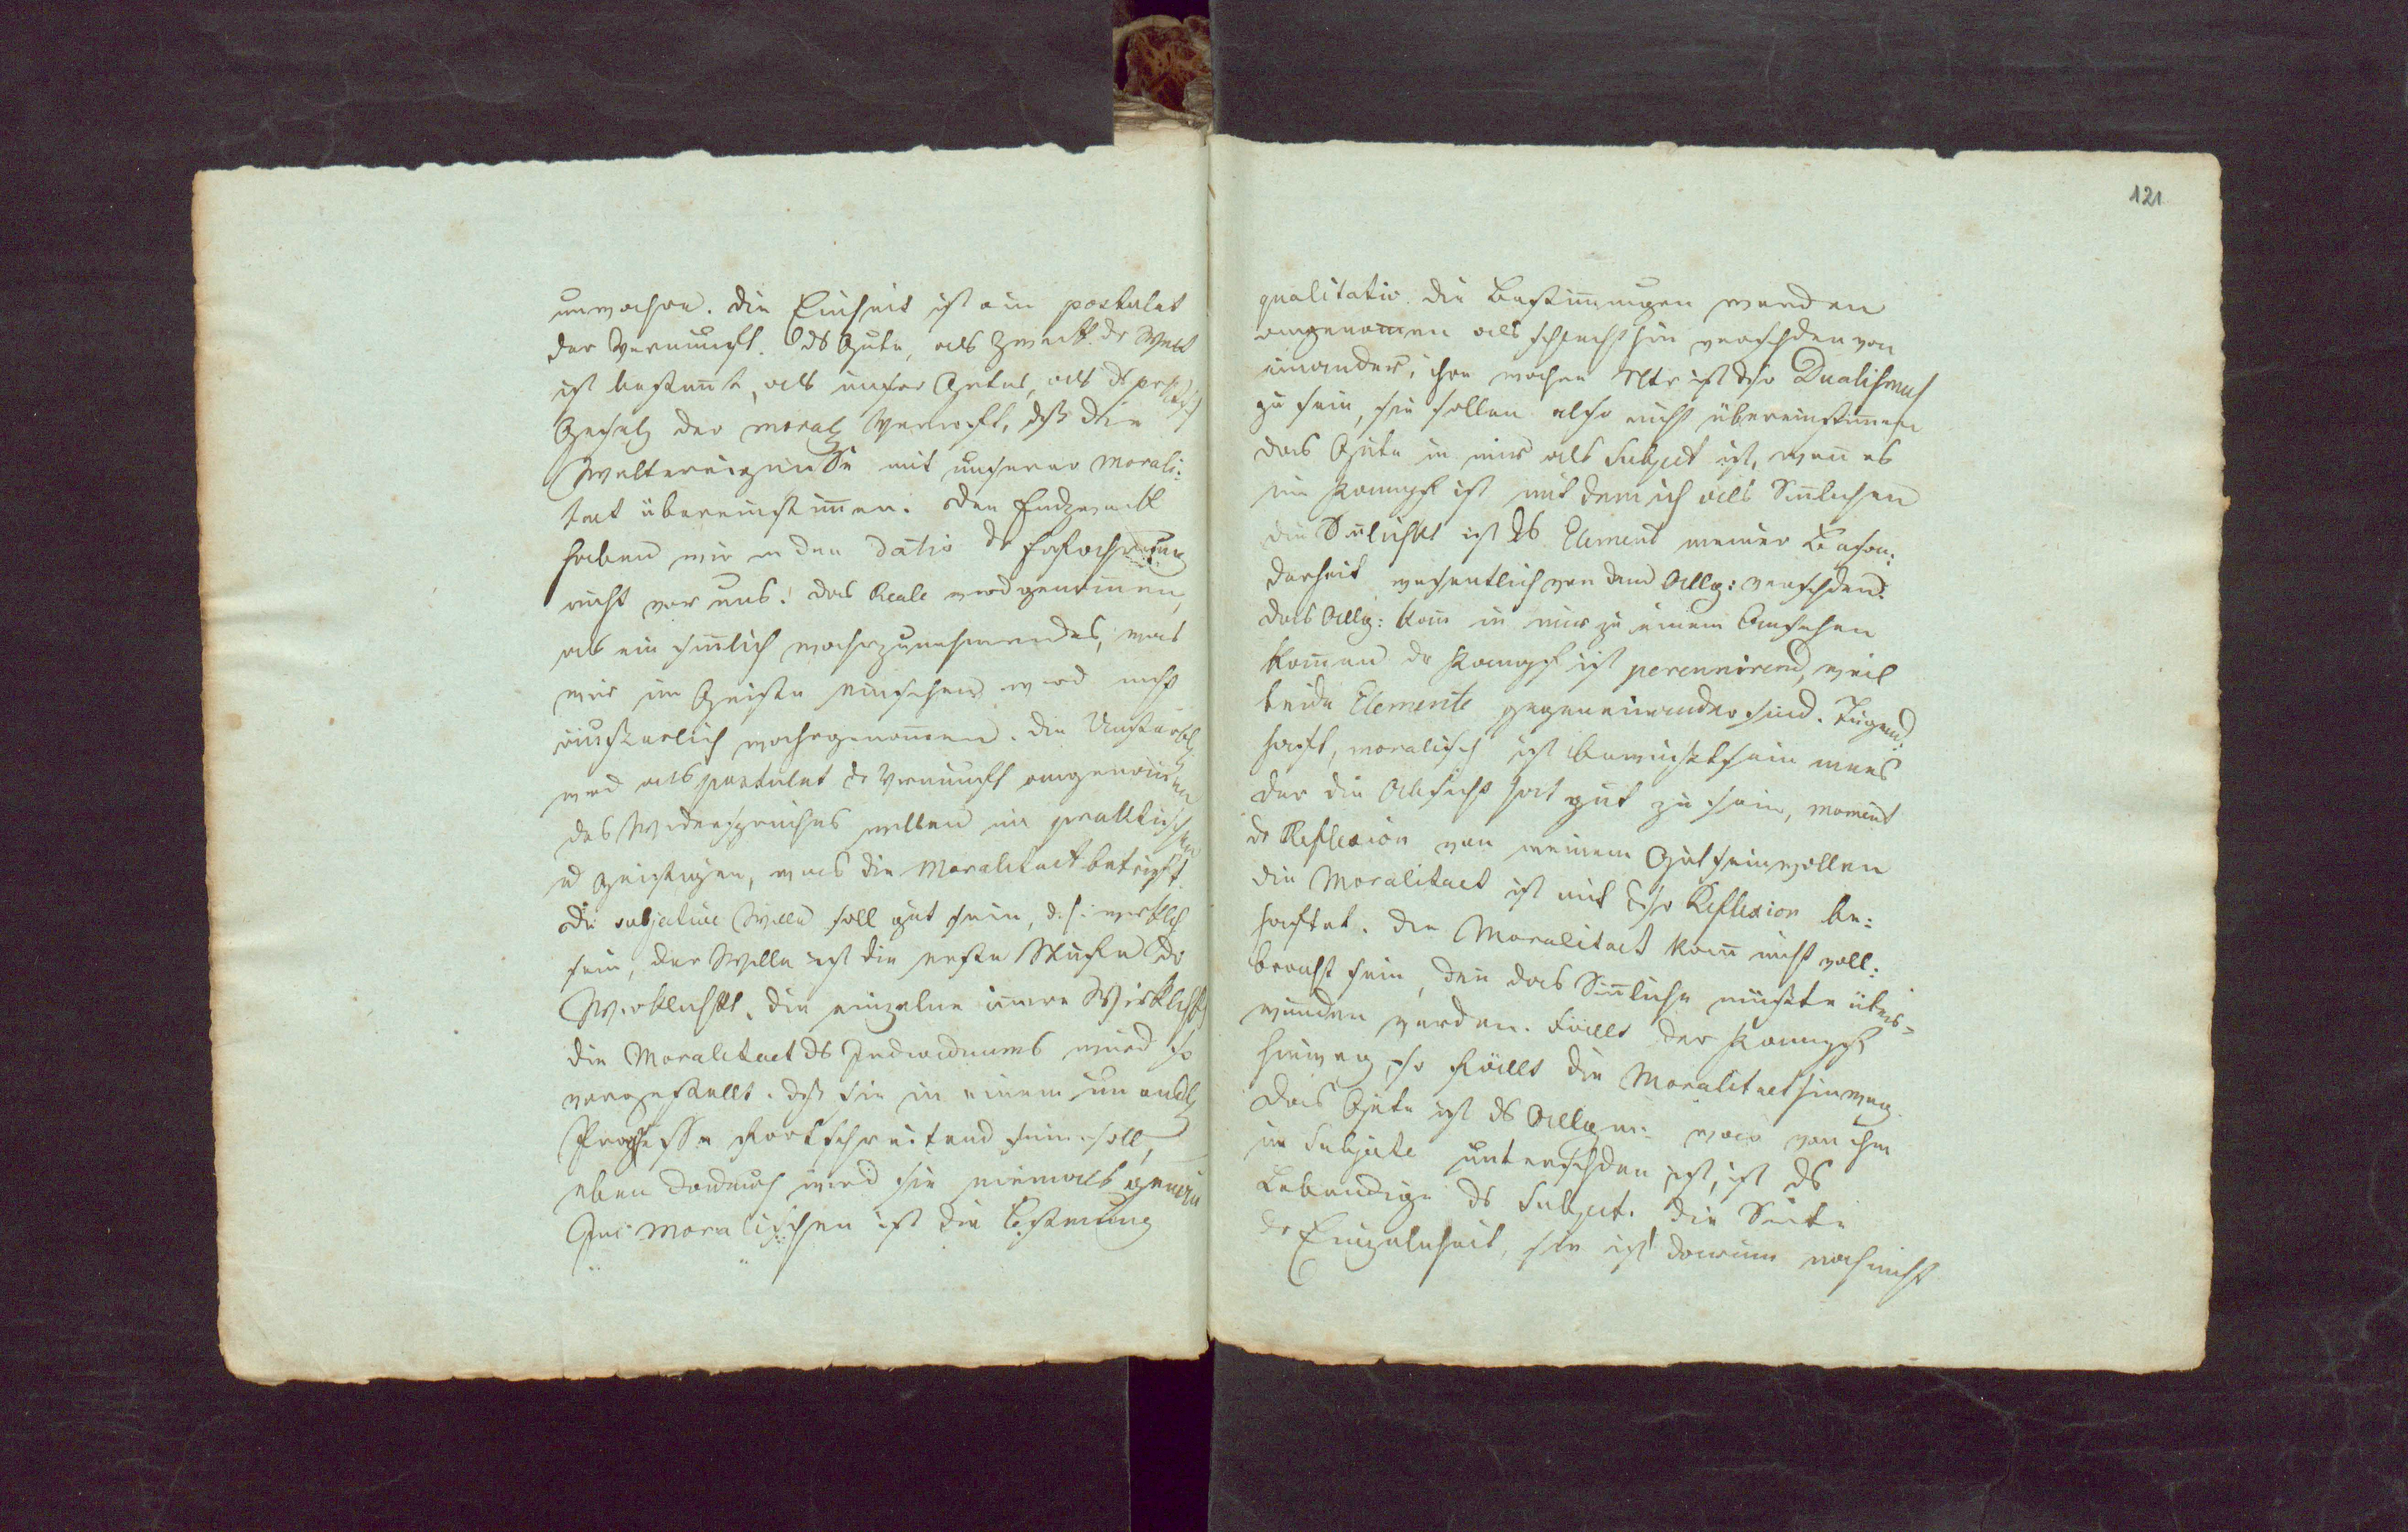 unwahre. Die Einheit ist ein postulat
der Vernunft. Ds Gute, als Zweck dr Welt
ist bestimt, als unser Gutes, als ds
Gesetz der moral Vernuft, dß die
Weltereignisse mit unserer Morali:
taet übereinstimmen. Den Endzweck
haben wir in den Datis dr
nicht vor uns! das Reale wird genommen,
als ein sinlich wahrzunehmendes, was
wir im Geiste einsehen wird nicht
äusserlich wahrgenommen. Die
wird als postulat dr Vernunft angenommen
des Widerspruches willen im praktischen
u Geistigen, was die Moralitaet betrifft.
Der subjective Wille soll gut sein, d.h. wirklich
sein, der Wille ist die erste Stufe dr
Wirklichkt. Die einzelne innere Wirklichkt
die Moralitaet ds Individuums wird so
vorgestellt. dß sie in einem unendl
Progresse fortschreitend sein soll,
eben dadurch wird sie niemals
Im moralischen ist die Bestimung
121
qualitativ. die Bestimungen werden
angenomen als schlechthin verschden von
einander; ihre wahre ist dsr Dualismus
zu sein, sie sollen also nicht übereinstimen
das Gute in mir als Subject ist, wenn es
im Kampf ist mit dem ich als Sinlichen
die Sinlichkt ist ds Element meiner Beson:
derheit wesentlich von dem Allg: verschden.
das Allg: kann in mir zu einem Ansehen
komen dr Kampf ist perennirend, weil
beide Elemente gegeneinander sind. Tugend:
haft, moralisch ist Bewußtsein eines
der die Absicht hat gut zu sein, moment
dr Reflexion von meinem Gutseinwollen
die Moralitaet ist mit dsr Reflexion be:
haftet. die Moralitaet kann nicht voll:
bracht sein, denn das Sinnliche müßte über=
wunden werden. Fällt der Kampf
hinweg, so fällt die Moralitaet hinweg.
das Gute ist ds Allgem: was von ihm
im Subjecte unterschden ist, ist ds
Lebendige ds Subject. die Seite
dr Einzelnheit, sie ist darum noch nicht